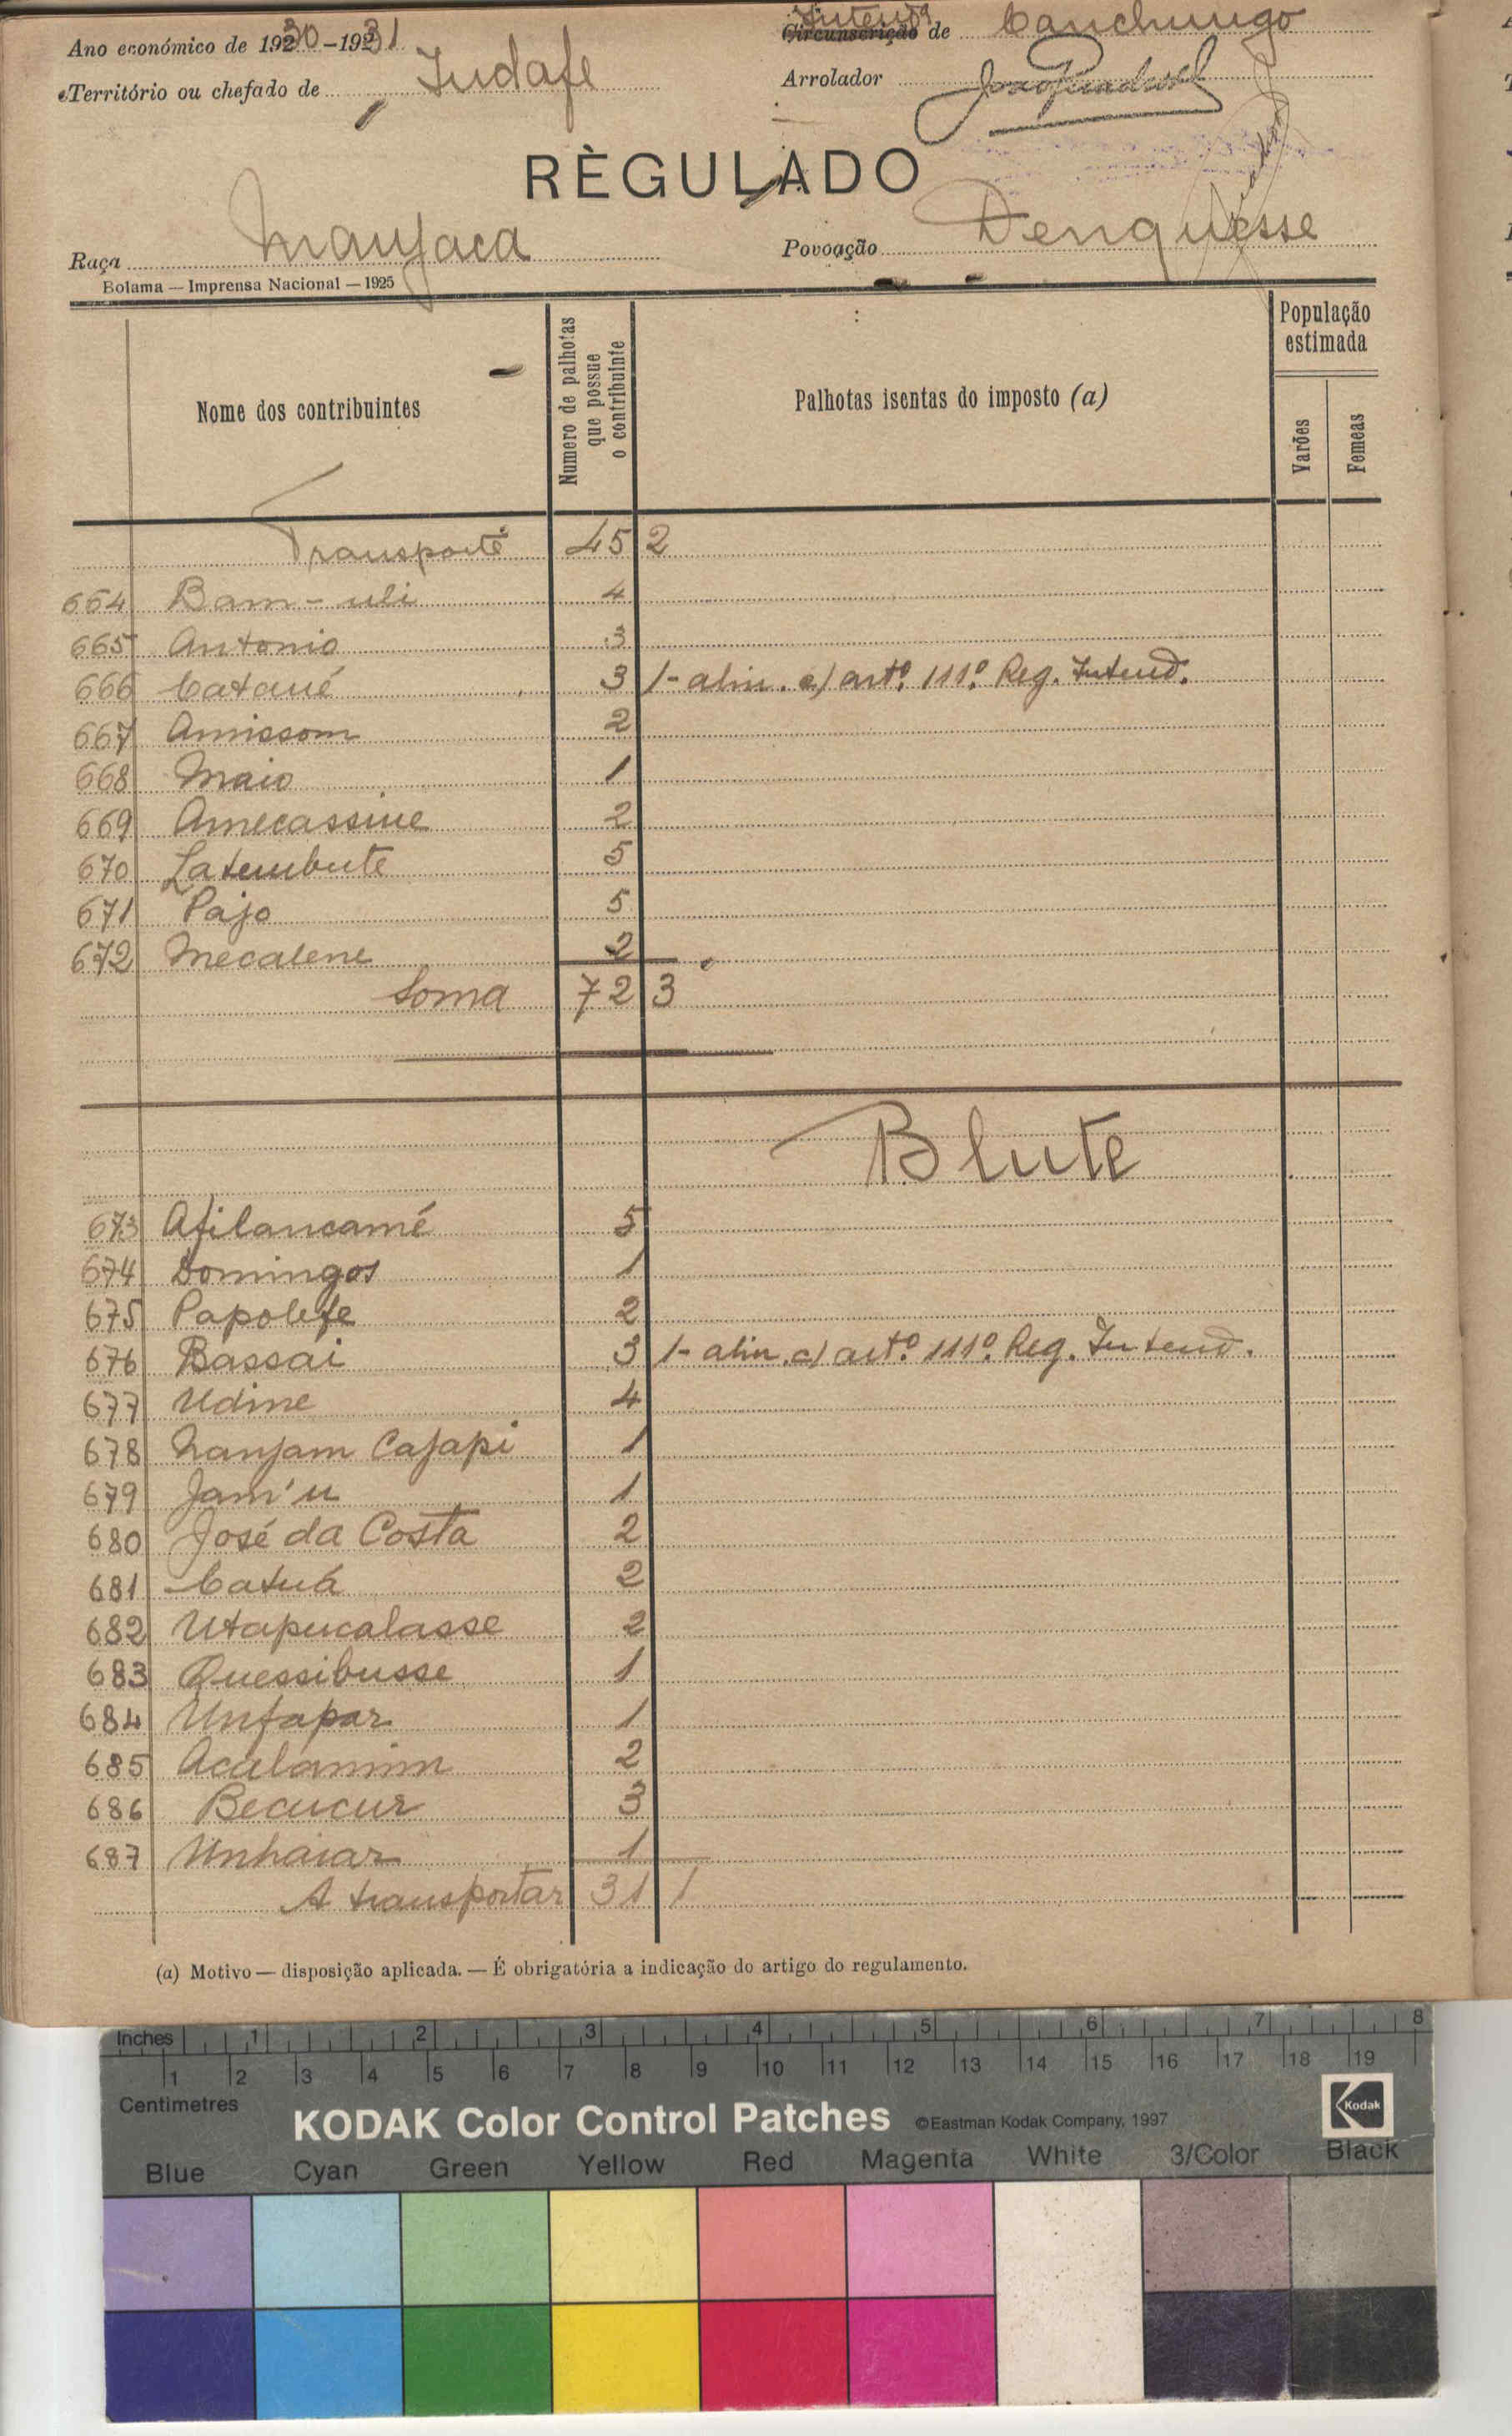 Ano económico de 1930-1931
Intend.ª de Canchungo
Território ou chefado de Indafe
Arrolador
RÈGULADO
Raça Manjaca
Povoação Denquesse
Bolama — Imprensa Nacional — 1925
Nome dos contribuintes
Numero de palhotas que possue o contribuinte
Palhotas isentas do imposto (a)
População estimada
Varões
Femeas
Transporte 45 2
664 Bam-uli 4
665 Antonio 3
666 Catané 3 1- alin. c) artº. 111º. Reg. Intend.
667 Amissom 2
668 Maio 1
669 Amecassine 2
670 Latembute 5
671 Pajo 5
672 Mecalene 2
Soma 72 3
Blute
673 Afilancamé 5
674 Domingos 1
675 Papolefe 2
676 Bassai 3 1- alin. c) artº. 111º. Reg. Intend.
677 Udine 4
678 Nanjam Cajapi 1
679 Jam'u 1
680 José da Costa 2
681 Catuá 2
682 Utapucalasse 2
683 Quessibusse 1
684 Unfapar 1
685 Acalamim 2
686 Becucur 3
687 Unhaiar 1
A transportar 31 1
(a) Motivo — disposição aplicada. — É obrigatória a indicação do artigo do regulamento.
Inches 1 2 3 4 5 6 7 8
1 2 3 4 5 6 7 8 9 10 11 12 13 14 15 16 17 18 19
Centimetres
KODAK Color Control Patches ©Eastman Kodak Company, 1997 Kodak
Blue Cyan Green Yellow Red Magenta White 3/Color Black